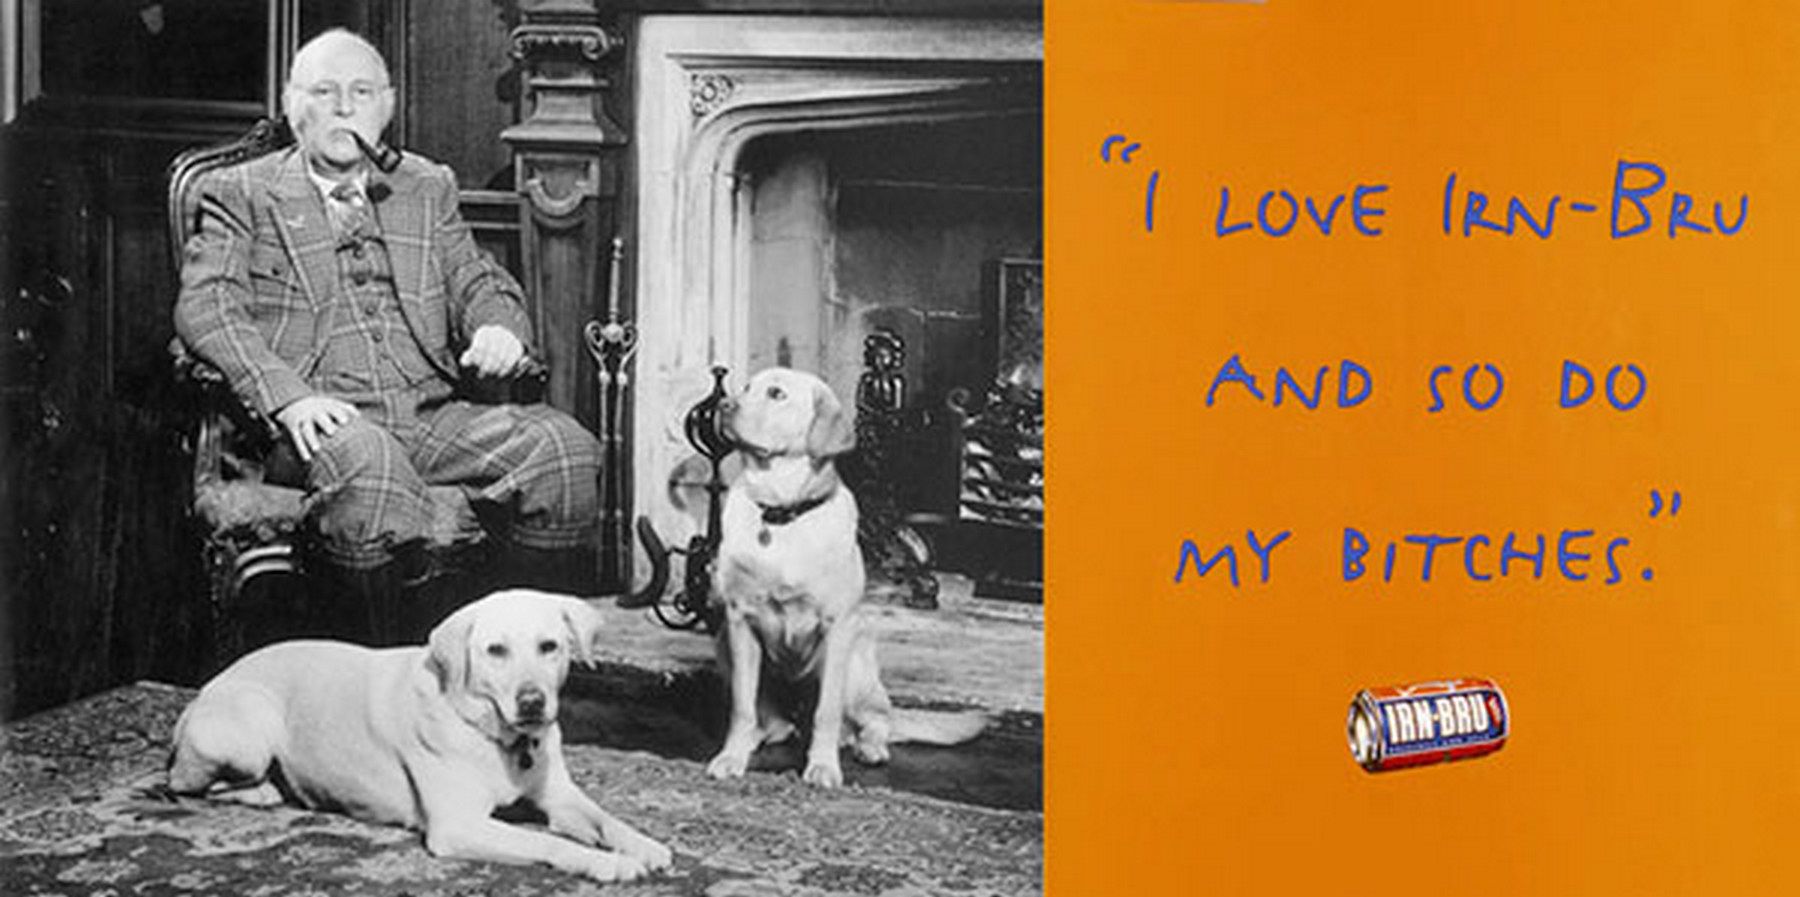 “I LOVE IRN-BRU
AND SO DO
MY BITCHES.”
IRN-BRU